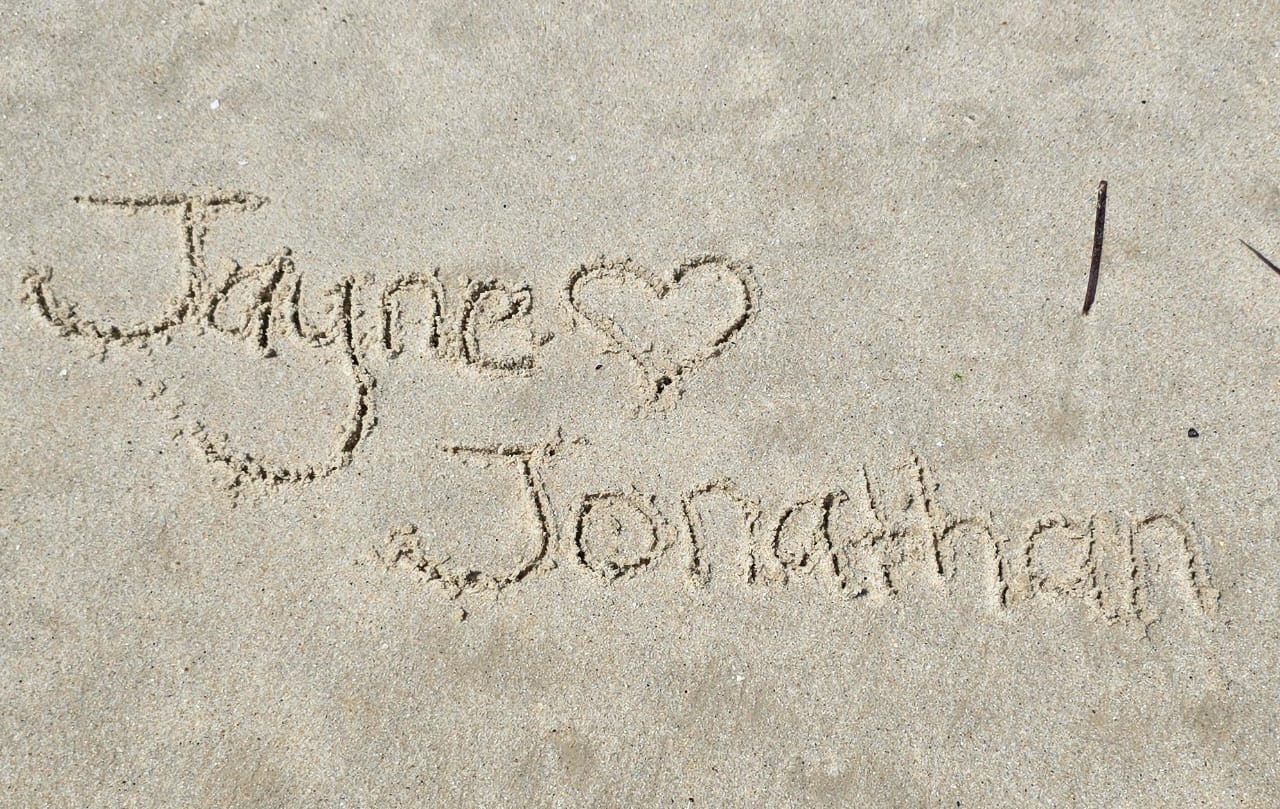 Jayne ♡
Jonathan